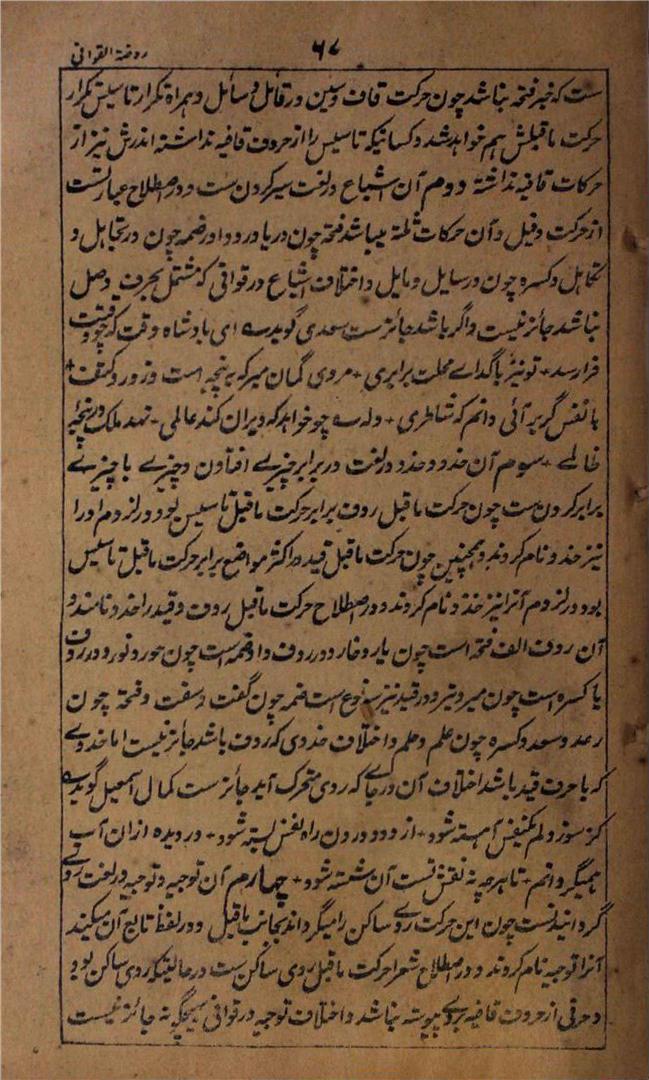 روضة القوافی
۶۷
ست که خبر فتحه نباشد چون حرکت قاف و سین در قائل و سائل و همراه تکرار تاسیس تکرار
حرکت ماقبلش هم خواهد شد و کسانیکه تاسیس را از حروف قافیه نداشته اندرش نیز از
حرکات قافیه نداشته دوم آن اشباع در لغت سیر کردن ست و در اصطلاح عبارتست
از حرکت دخیل و آن حرکات ثلثه میباشد فتحه چون در یاور و داور ضمه چون در تجاهل و
تکاهل و کسره چون در سایل و مایل و اختلاف اشباع در قوافی که مشتمل بحرف وصل
نباشد جائز نیست و اگر باشد جائز ست سعدی گوید ای بادشاه وقت که چو وقتت
فرا رسد + تو نیز با گدائے محلت برابری + مردی گمان مبر که به پنجه است و زور و کتف +
با نفس گر برآئی دانم که شاطری + وله سه چو خواهد که ویران کند عالمی + نهد ملک در پنجه
ظالمے + سوم آن حذو و حذو در لغت در برابر چیزے افتادن و چیزے با چیزے
برابر کردن ست چون حرکت ماقبل روف برابر حرکت ماقبل تاسیس بود در لزوم او را
نیز حذو نام کردند و همچنین چون حرکت ماقبل قید در اکثر مواضع برابر حرکت ماقبل تاسیس
بود در لزوم آنرا نیز حذو نام کردند و در اصطلاح حرکت ماقبل روف و قید را حذو نامند و
آن روف الف فتحه است چون یار و غار و در روف واو ضمه است چون حور و نور و در روف
یا کسره است چون میر و تیر و در قید نیز سه نوع است ضمه چون گفت و سفت و فتحه چون
رعد و سعد و کسره چون علم و حلم و اختلاف حذوی که روف باشد جائز نیست اما حذوے
که با حرف قید باشد اختلاف آن در جاے که روی متحرک آید جائز ست کمال اسمعیل گوید
گر سوز دلم یکنفس آهسته شود + از دود درون راه نفس بسته شود + در دیده ازان آب
همیگردانم + تا هرچه نه نقش تست آن شسته شود + چهارم آن توجیه و توجیه در لغت روے
گردانیدنست چون این حرکت روے ساکن را میگرداند بجانب ماقبل و در لفظ تابع آن میکند
آنرا توجیه نام کردند و در اصطلاح شعرا حرکت ماقبل روی ساکن ست در حالتیکه روی ساکن بود
و حرفی از حروف قافیه بروے پیوسته نباشد و اختلاف توجیه در قوافی هیچگونه جائز نیست